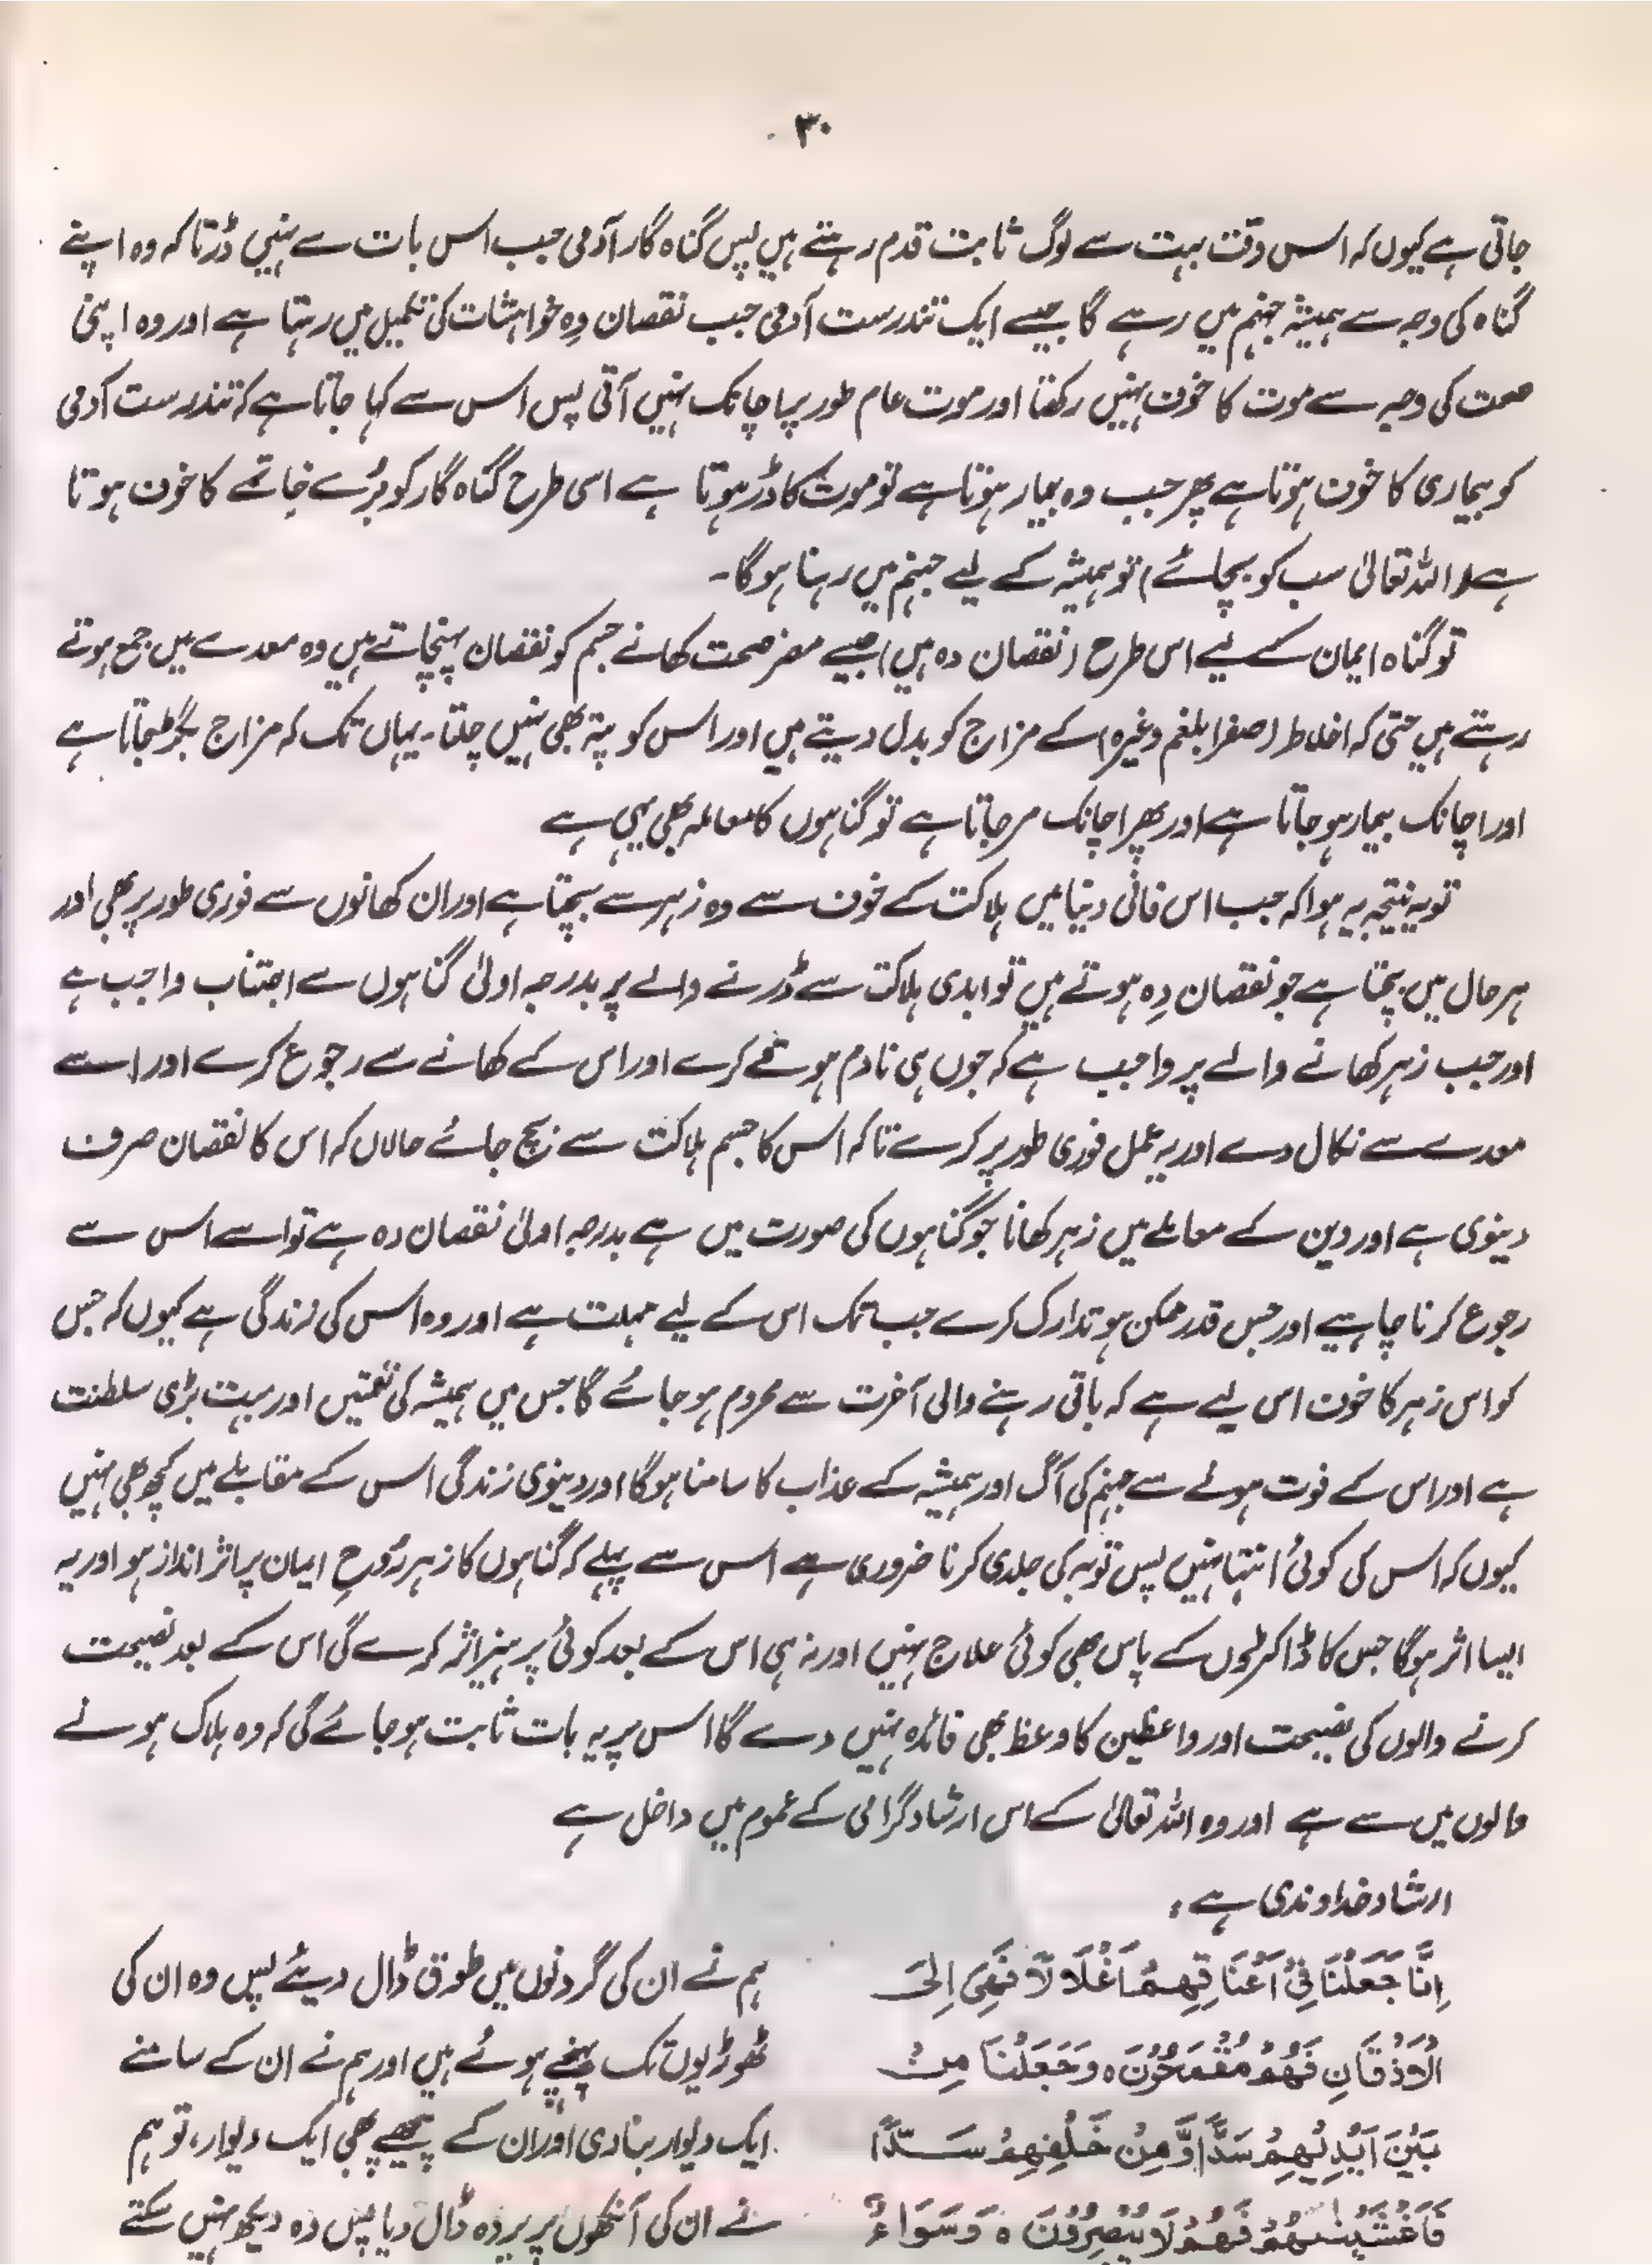 ۳۰
جاتی ہے کیوں کہ اس وقت بہت سے لوگ ثابت قدم رہتے ہیں پس گناہ گار آدمی جب اس بات سے نہیں ڈرتا کہ وہ اپنے
گناہ کی وجہ سے ہمیشہ جہنم میں رہے گا جیسے ایک تندرست آدمی جب نقصان دِہ خواہشات کی تکمیل میں رہتا ہے اور وہ اپنی
صحت کی وجہ سے موت کا خوف نہیں رکھتا اور موت عام طور پر اچانک نہیں آتی پس اس سے کہا جاتا ہے کہ تندرست آدمی
کو بیماری کا خوف ہوتا ہے پھر جب وہ بیمار ہوتا ہے تو موت کا ڈر ہوتا ہے اسی طرح گناہ گار کو بُرے خاتمے کا خوف ہوتا
ہے (اللہ تعالیٰ سب کو بچائے) تو ہمیشہ کے لیے جہنم میں رہنا ہوگا۔
تو گناہ ایمان کے لیے اس طرح (نقصان دہ ہیں) جیسے مضر صحت کھانے جسم کو نقصان پہنچاتے ہیں وہ معدے میں جمع ہوتے
رہتے ہیں حتی کہ اخلاط (صفرا بلغم وغیرہ) کے مزاج کو بدل دیتے ہیں اور اس کو پتہ بھی نہیں چلتا۔ یہاں تک کہ مزاج بگڑ جاتا ہے
اور اچانک بیمار ہو جاتا ہے اور پھر اچانک مر جاتا ہے تو گناہوں کا معاملہ بھی یہی ہے
تو یہ نتیجہ یہ ہوا کہ جب اس فانی دنیا میں ہلاکت کے خوف سے وہ زہر سے بچتا ہے اور ان کھانوں سے فوری طور پر بھی اور
ہر حال میں بچتا ہے جو نقصان دِہ ہوتے ہیں تو ابدی ہلاکت سے ڈرنے والے پر بدرجہ اولیٰ گناہوں سے اجتناب واجب ہے
اور جب زہر کھانے والے پر واجب ہے کہ جوں ہی نادم ہو قے کرے اور اس کے کھانے سے رجوع کرے اور اسے
معدے سے نکال دے اور یہ عمل فوری طور پر کرے تاکہ اس کا جسم ہلاکت سے بچ جائے حالاں کہ اس کا نقصان صرف
دینوی ہے اور دین کے معاملے میں زہر کھانا جو گناہوں کی صورت میں ہے بدرجہ اولیٰ نقصان دہ ہے تو اسے اس سے
رجوع کرنا چاہیے اور جس قدر ممکن ہو تدارک کرے جب تک اس کے لیے مہلت ہے اور وہ اس کی زندگی ہے کیوں کہ جس
کو اس زہر کا خوف اس لیے ہے کہ باقی رہنے والی آخرت سے محروم ہو جائے گا جس میں ہمیشہ کی نعمتیں اور بہت بڑی سلطنت
ہے اور اس کے فوت ہونے سے جہنم کی آگ اور ہمیشہ کے عذاب کا سامنا ہوگا اور دینوی زندگی اس کے مقابلے میں کچھ بھی نہیں
کیوں کہ اس کی کوئی انتہا نہیں پس توبہ کی جلدی کرنا ضروری ہے اس سے پہلے کہ گناہوں کا زہر رُوحِ ایمان پر اثر انداز ہو اور یہ
ایسا اثر ہوگا جس کا ڈاکٹروں کے پاس بھی کوئی علاج نہیں اور نہ ہی اس کے بعد کوئی پرہیز اثر کرے گی اس کے بعد نصیحت
کرنے والوں کی نصیحت اور واعظین کا وعظ بھی فائدہ نہیں دے گا اس پر یہ بات ثابت ہو جائے گی کہ وہ ہلاک ہونے
والوں میں سے ہے اور وہ اللہ تعالیٰ کے اس ارشاد گرامی کے عموم میں داخل ہے
ارشاد خداوندی ہے:
اِنَّا جَعَلْنَا فِیْ اَعْنَاقِهِمْ اَغْلَالًا فَهِیَ اِلَی
الْاَذْقَانِ فَهُمْ مُّقْمَحُوْنَ ہ وَجَعَلْنَا مِنْ
بَیْنِ اَیْدِیْهِمْ سَدًّا وَّمِنْ خَلْفِهِمْ سَدًّا
فَاَغْشَیْنٰهُمْ فَهُمْ لَا یُبْصِرُوْنَ ہ وَسَوَاءٌ
ہم نے ان کی گردنوں میں طوق ڈال دیئے پس وہ ان کی
ٹھوڑیوں تک پہنچے ہوئے ہیں اور ہم نے ان کے سامنے
ایک دیوار بنا دی اور ان کے پیچھے بھی ایک دیوار، تو ہم
نے ان کی آنکھوں پر پردہ ڈال دیا پس وہ دیکھ نہیں سکتے